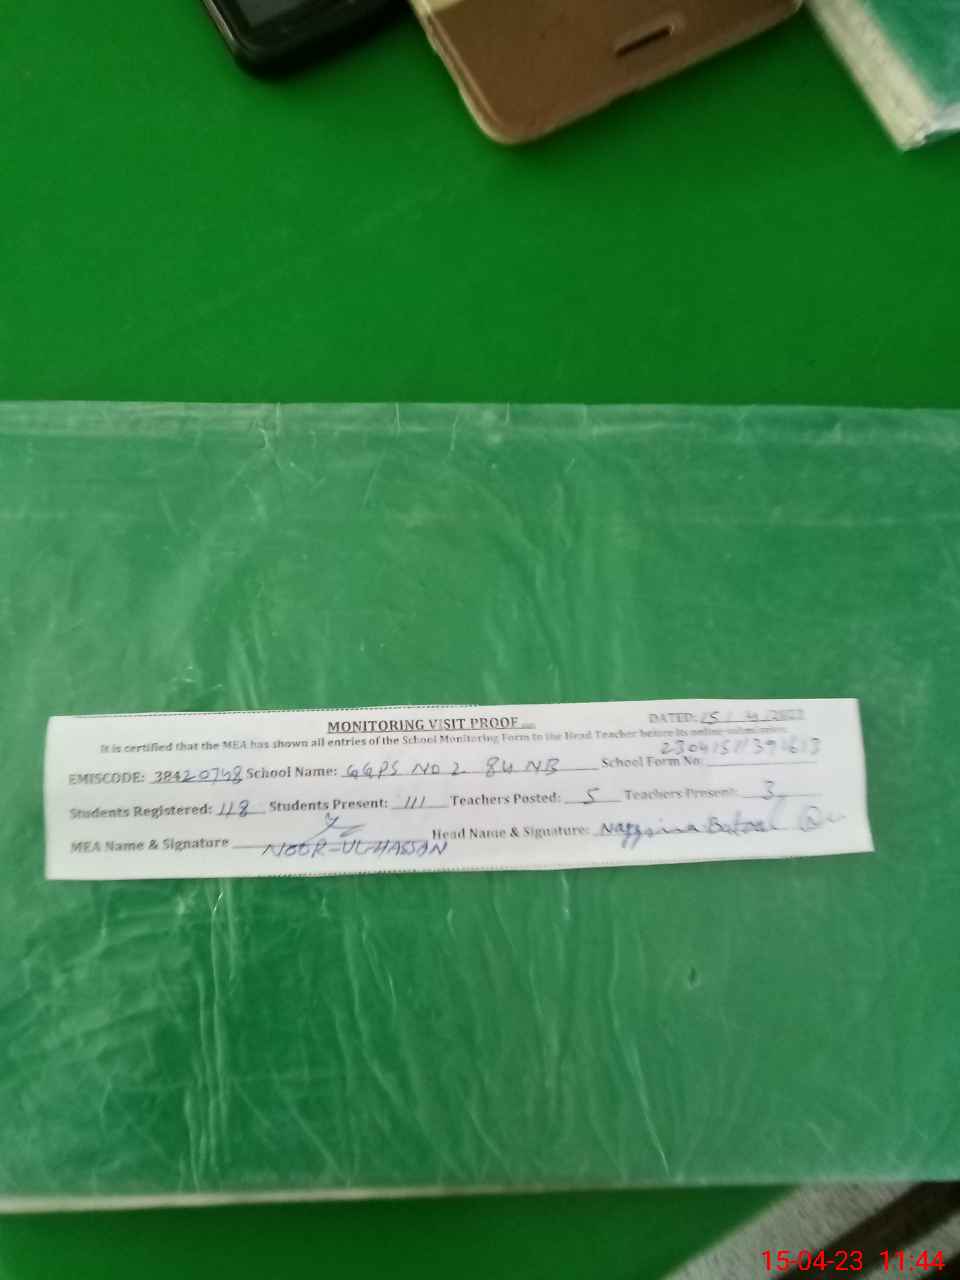 MONITORING VISIT PROOF
DATED: 15 / 4 /2023
It is certified that the MEA has shown all entries of the School Monitoring Form to the Head Teacher before its online submission.
EMISCODE: 38420748 School Name: GGPS NO 2 84 NB School Form No:
Students Registered: 118 Students Present: 111 Teachers Posted: 5 Teachers Present: 3
MEA Name & Signature NOOR-UL-HASSAN Head Name & Signature: Batool
15-04-23 11:44